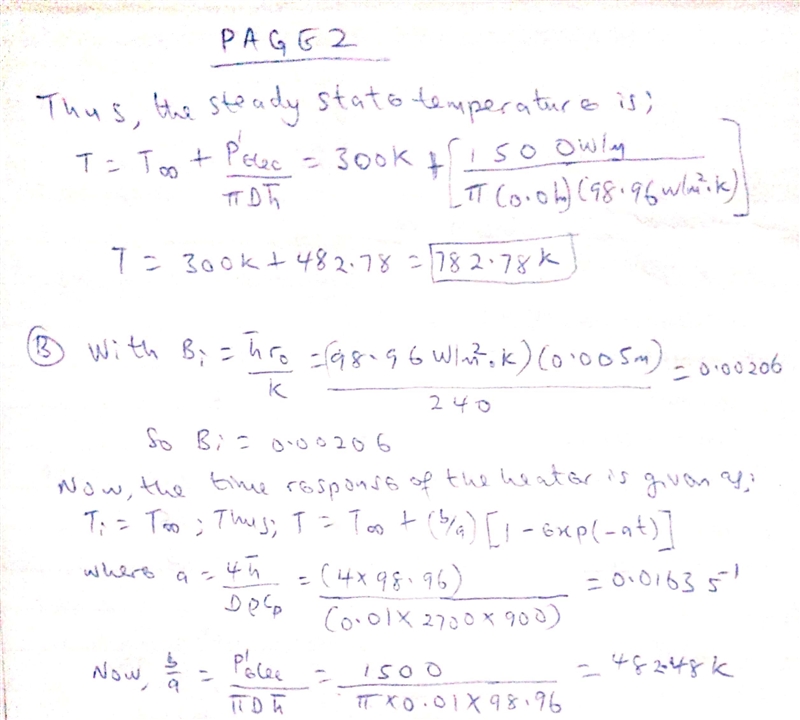 PAGE 2
Thus, the steady state temperature is;
T = T∞ + P'elec / πDh̄ = 300K + [1500w/m / π(0.01m)(98.96w/m².k)]
T = 300k + 482.78 = 782.78k
(B) With Bi = h̄r₀ / k = (98.96 W/m².k)(0.005m) / 240 = 0.00206
So Bi = 0.00206
Now, the time response of the heater is given as;
Ti = T∞; Thus; T = T∞ + (b/a)[1 - exp(-at)]
where a = 4h̄ / Dρcp = (4 × 98.96) / (0.01 × 2700 × 900) = 0.0163 s⁻¹
Now, b/a = P'elec / πDh̄ = 1500 / π × 0.01 × 98.96 = 482.48k